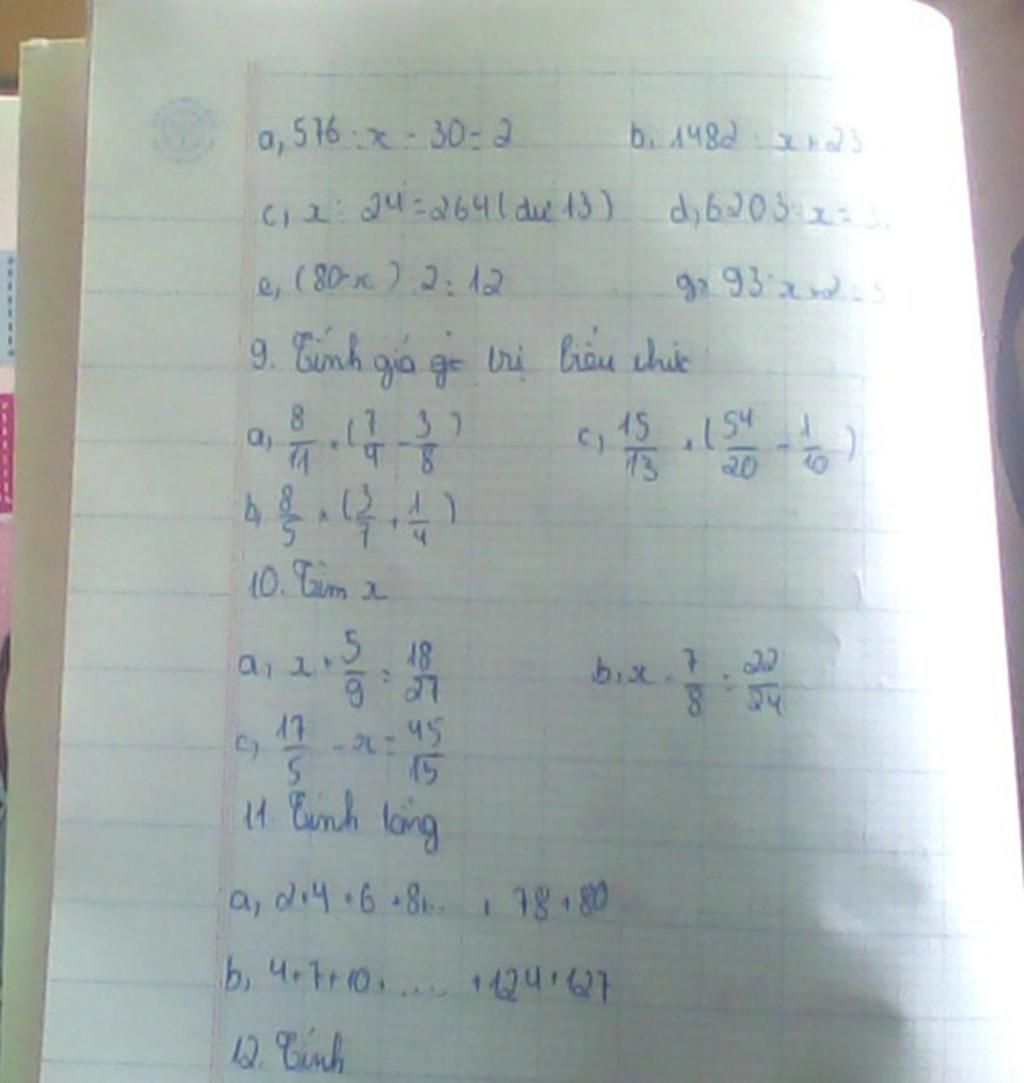 a, 576 : x - 30 = 2 b, 1482 : x + 23
c, x : 24 = 264 (dư 13) d, 6203 : x = 3
e, (80 - x) . 2 = 12 g, 93 - x . 2 =
9. Tính giá trị biểu thức
a, 8/11 . (7/4 - 3/8) c, 15/13 . (54/20 - 1/10)
b, 8/5 . (3/7 + 1/4)
10. Tìm x
a, x . 5/9 = 18/27 b, x . 7/8 = 22/24
c, 17/5 - x = 45/15
11. Tính tổng
a, 2 + 4 + 6 + 8 + ... + 78 + 80
b, 4 + 7 + 10 + ..... + 124 + 127
12. Tính